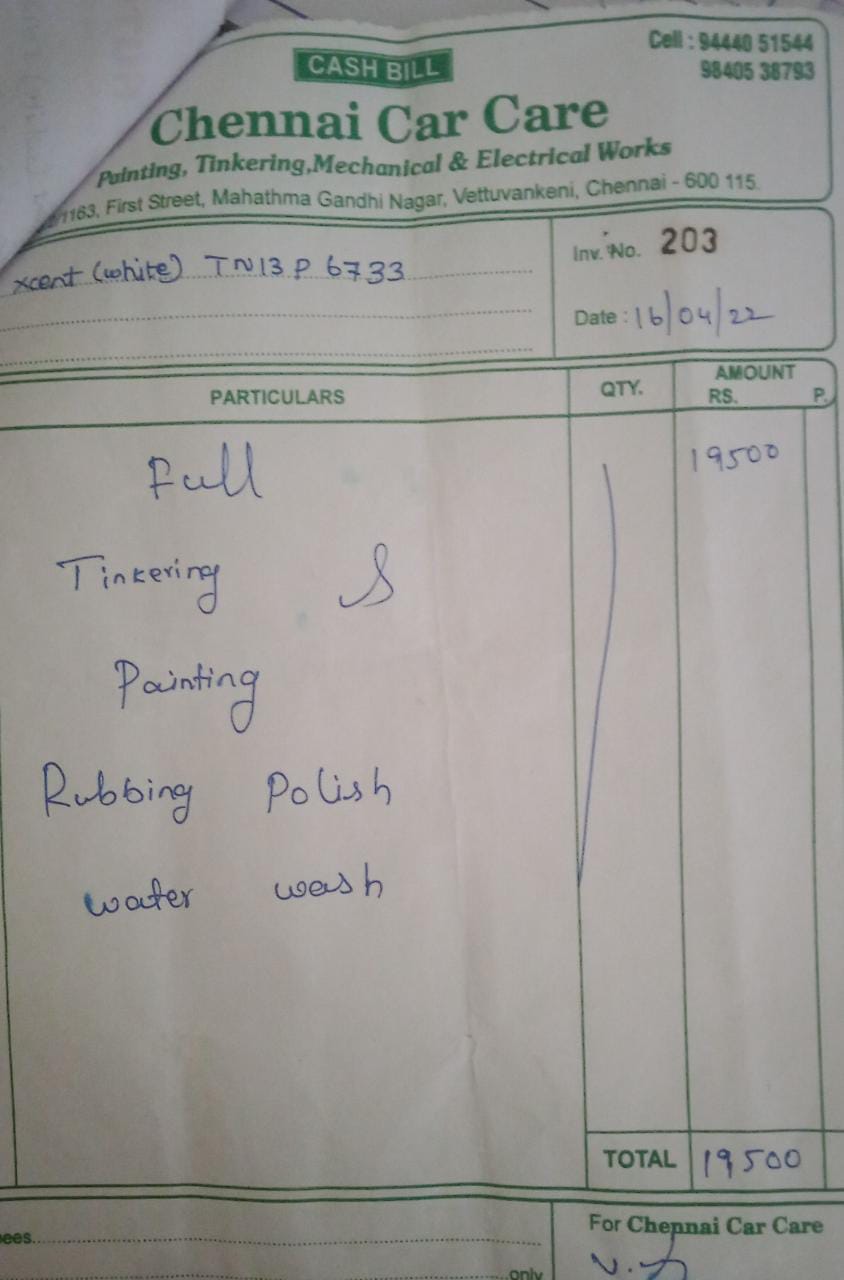 CASH BILL
Cell : 94440 51544
98405 38793
Chennai Car Care
Painting, Tinkering,Mechanical & Electrical Works
1163, First Street, Mahathma Gandhi Nagar, Vettuvankeni, Chennai - 600 115.
xcent (white) TN13 P 6733
Inv. No. 203
Date : 16/04/22
PARTICULARS QTY. AMOUNT
RS. P.
Full 19500
Tinkering &
Painting
Rubbing Polish
water wash
TOTAL 19500
For Chennai Car Care
ees
only